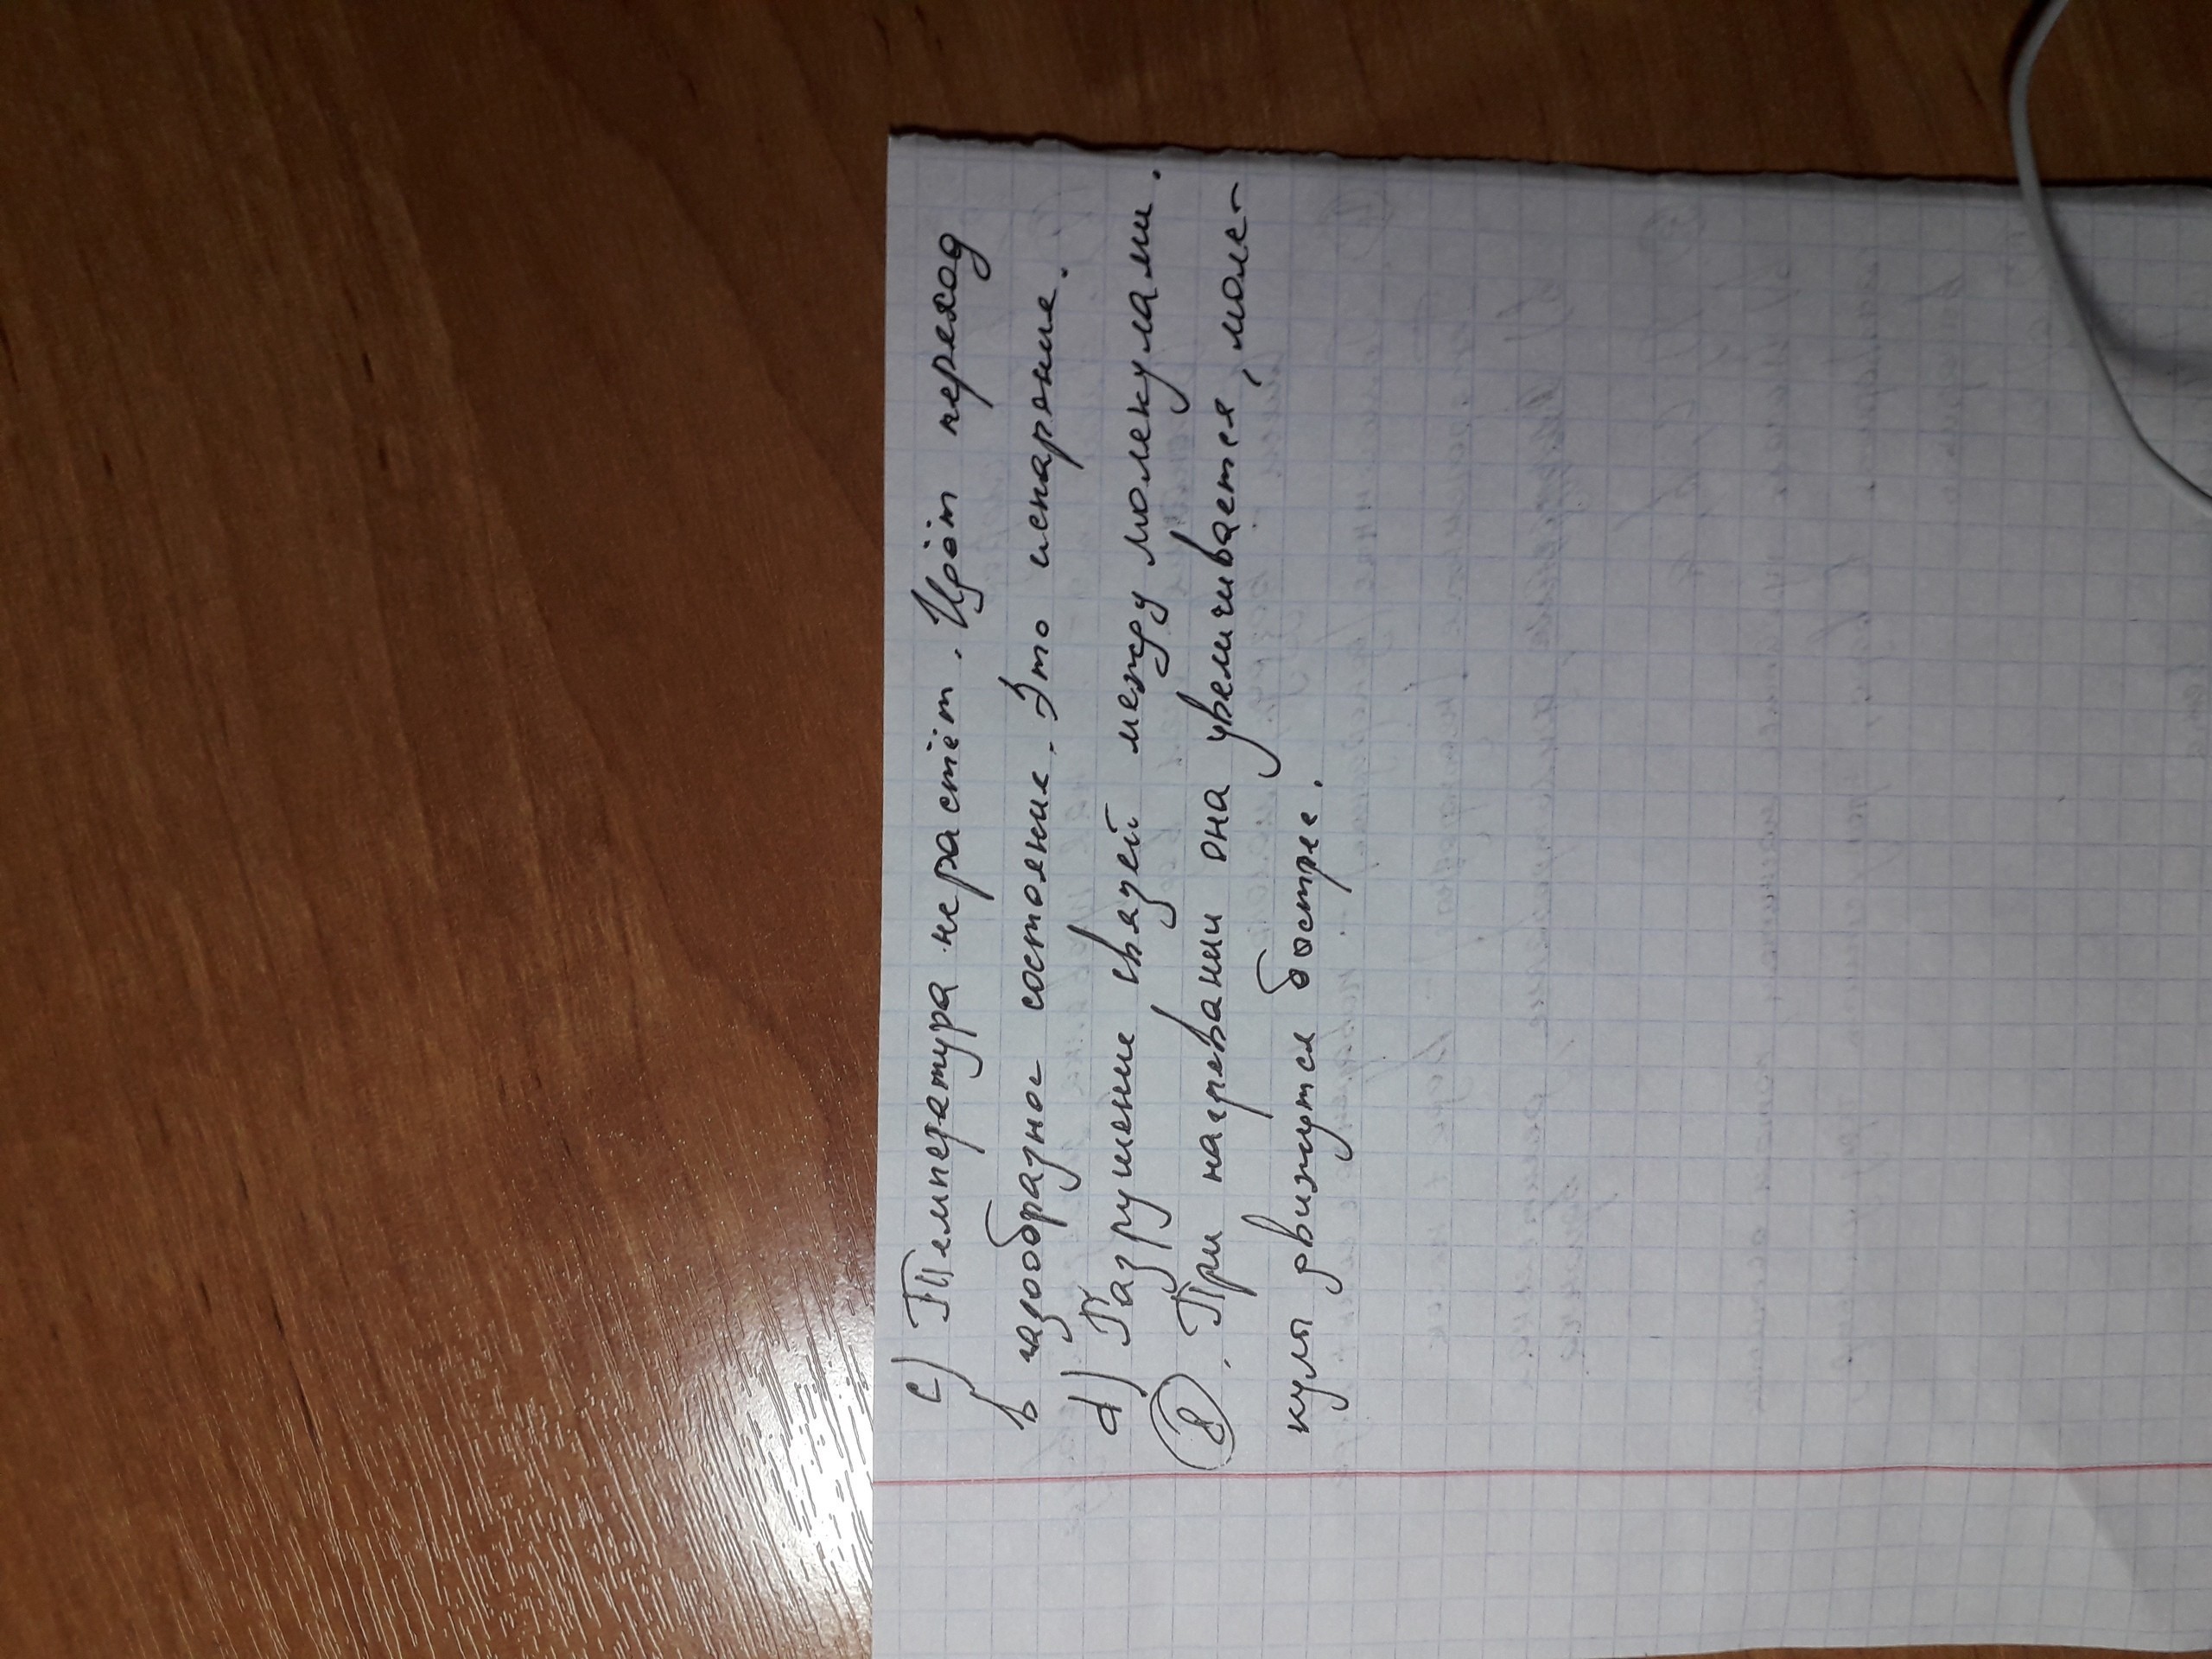 c) Температура не растёт. Идёт переход
в газообразное состояние. Это испарение.
d) Разрушение связей между молекулами.
8. При нагревании она увеличивается, моле-
кулы движутся быстрее.